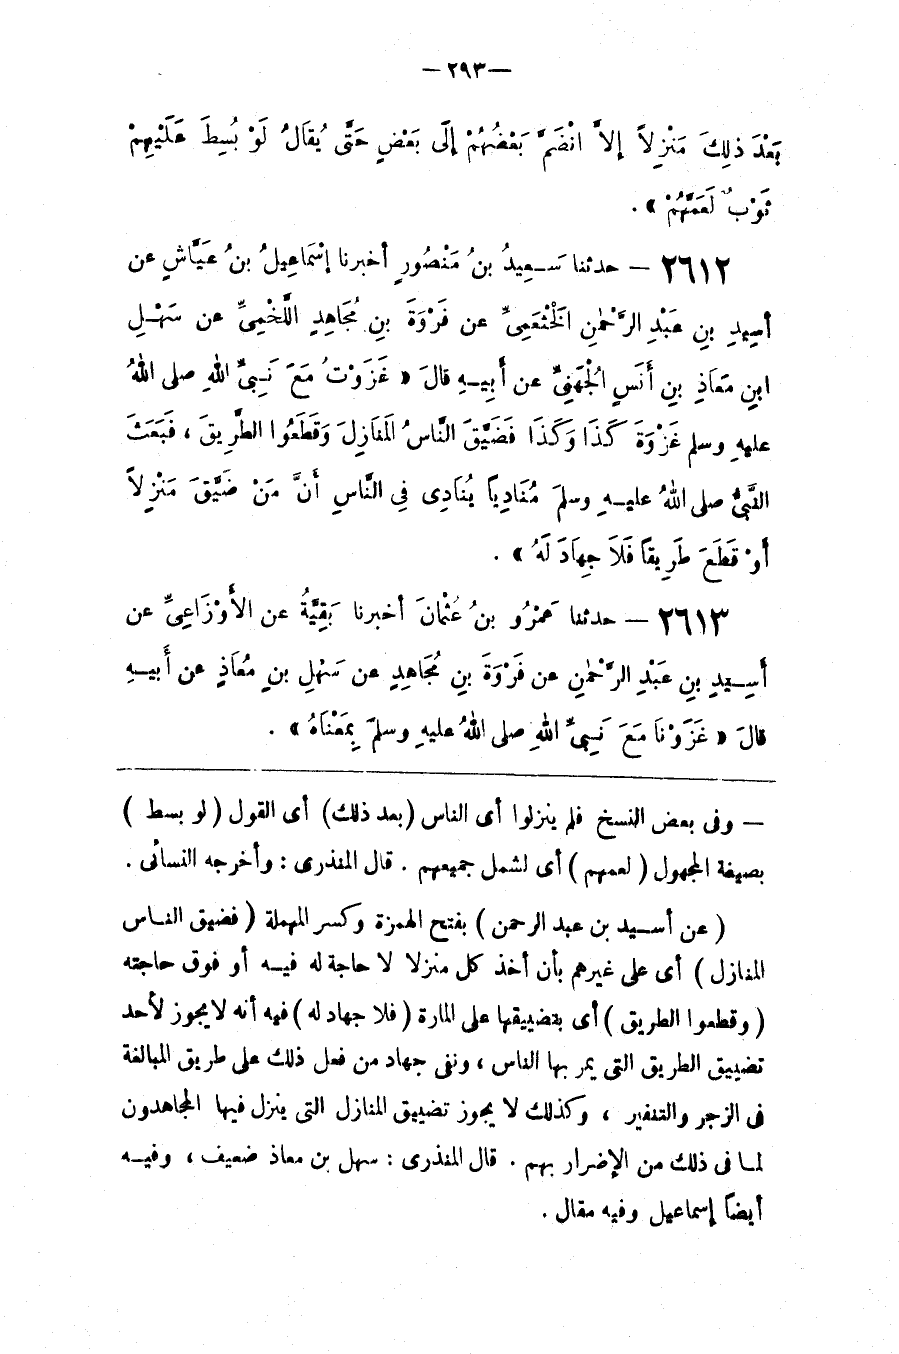 — ٢٩٣ —
بَعْدَ ذٰلِكَ مَنْزِلاً إلاَّ انْضَمَّ بَعْضُهُمْ إلَى بَعْضٍ حَتَّى يُقاَلُ لَوْ بُسِطَ عَلَيْهِمْ
ثَوْبٌ لَعَمَّهُمْ » .
٢٦١٢ — حدثنا سَـعِيدُ بنُ مَنْصُورٍ أخبرنا إسْمَاعِيلُ بنُ عَيَّاشٍ عن
أسِيدِ بنِ عَبْدِ الرَّحْمٰنِ الْخَثْعَمِىِّ عن فَرْوَةَ بنِ مُجَاهِدٍ اللَّخْمِىِّ عن سَهْـلِ
ابنِ مَعَاذِ بنِ أَنَسٍ الْجُهَنِىِّ عن أَبِيـهِ قالَ « غَزَوْتُ مَعَ نَـبِىِّ اللهِ صلى اللهُ
عليهِ وسلم غَزْوَةَ كَذَا وَكَذَا فَضَيَّقَ النَّاسُ الْمَنَازِلَ وَقَطَعُوا الطَّرِيقَ ، فَبَعَثَ
النَّبِىُّ صلى اللهُ عليـهِ وسلمَ مُنَادِياً يُنَادِى فِى النَّاسِ أَنَّ مَنْ ضَيَّقَ مَنْزِلاً
أوْ قَطَعَ طَرِيقاً فَلاَ جِهَادَ لَهُ » .
٢٦١٣ — حدثنا عَمْرُو بنُ عُثْمَانَ أخبرنا بَقِيَّةُ عن الأَوْزَاعِىِّ عن
أَسِـيدِ بنِ عَبْدِ الرَّحْمٰنِ عن فَرْوَةَ بنِ مُجَاهِدٍ عن سَهْلِ بنِ مُعَاذٍ عن أَبيـهِ
قالَ « غَزَوْنَا مَعَ نَـبِىِّ اللهِ صلى اللهُ عليهِ وسلمَ بِمَعْنَاهُ » .
— وفى بعض النسخ فلم ينزلوا أى الناس (بعد ذلك) أى القول ( لو بسط )
بصيغة المجهول ( لعمهم ) أى لشمل جميعهم . قال المنذرى : وأخرجه النسائى .
( عن أسـيد بن عبد الرحمن ) بفتح الهمزة وكسر المهملة ( فضيق النـاس
المنازل ) أى على غيرهم بأن أخذ كل منزلا لا حاجة له فيـه أو فوق حاجته
( وقطعوا الطريق ) أى بتضييقها على المارة ( فلا جهاد له ) فيه أنه لا يجوز لأحد
تضييق الطريق التى يمر بها الناس ، ونفى جهاد من فعل ذلك على طريق المبالغة
فى الزجر والتنفير ، وكذلك لا يجوز تضييق المنازل التى ينزل فيها المجاهدون
لمـا فى ذلك من الإضرار بهم . قال المنذرى : سهل بن معاذ ضعيف ، وفيـه
أيضاً إسماعيل وفيه مقال .